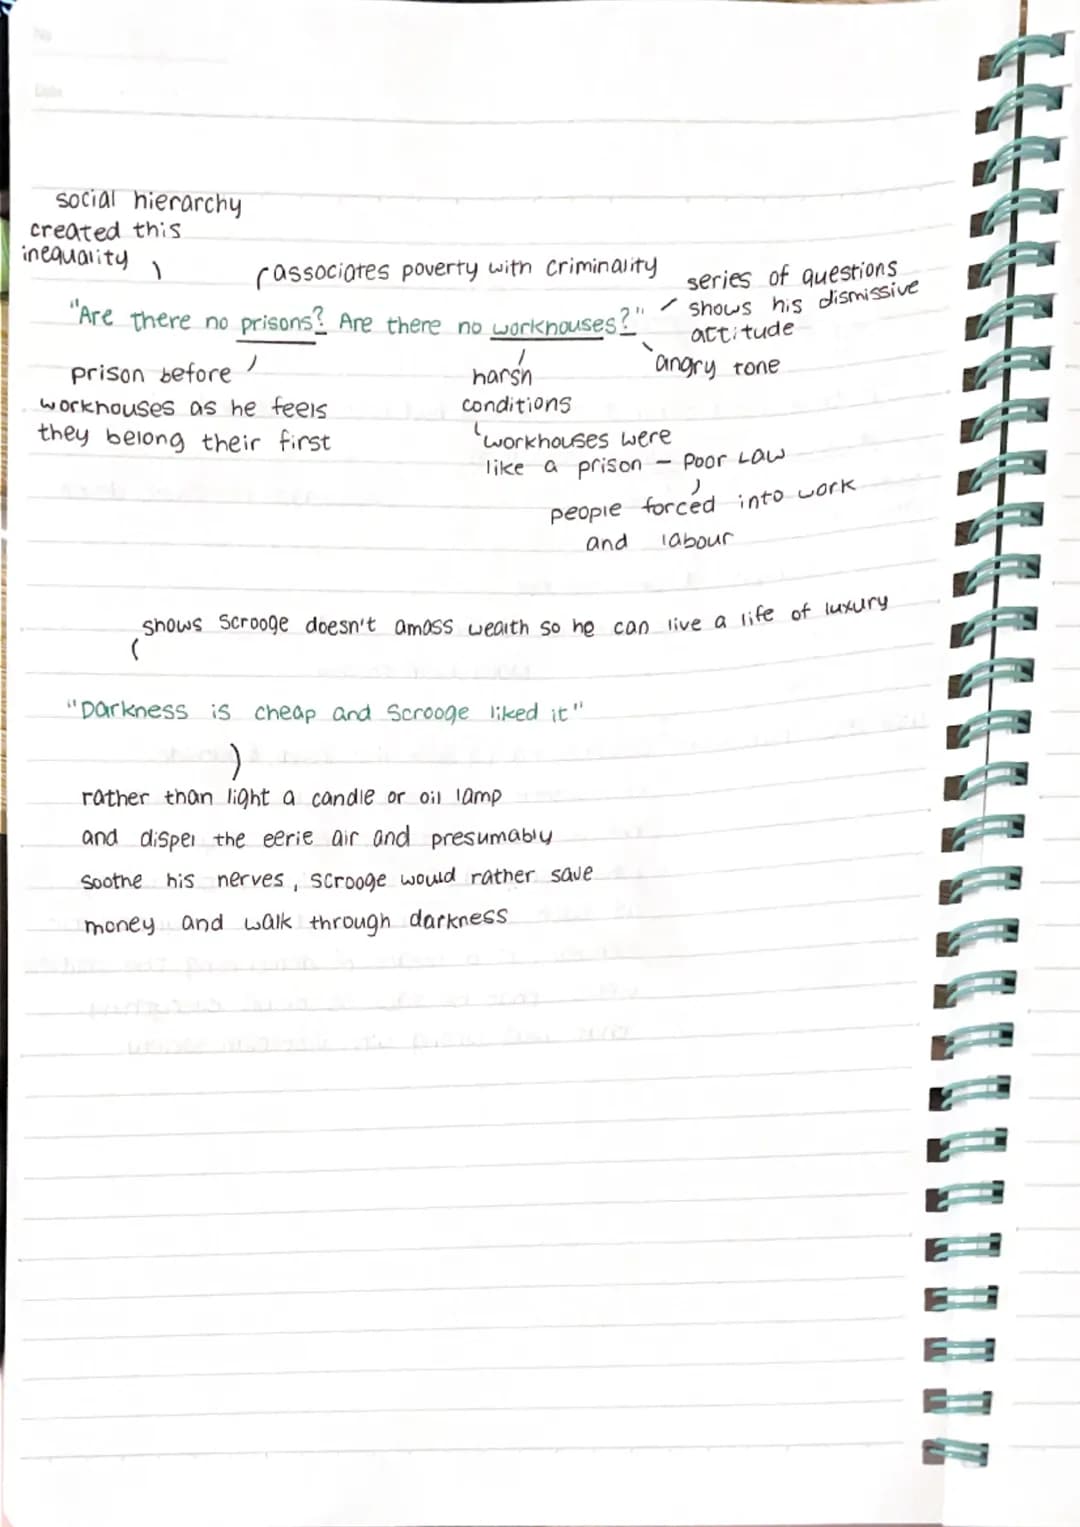 No
Date
social hierarchy
created this
inequality
associates poverty with criminality
series of questions
shows his dismissive
attitude
"Are there no prisons? Are there no workhouses?"
angry tone
prison before
workhouses as he feels
they belong their first
harsh
conditions
workhouses were
like a prison - Poor Law
people forced into work
and labour
shows Scrooge doesn't amass wealth so he can live a life of luxury
"Darkness is cheap and Scrooge liked it"
rather than light a candle or oil lamp
and dispel the eerie air and presumably
soothe his nerves, scrooge would rather save
money and walk through darkness